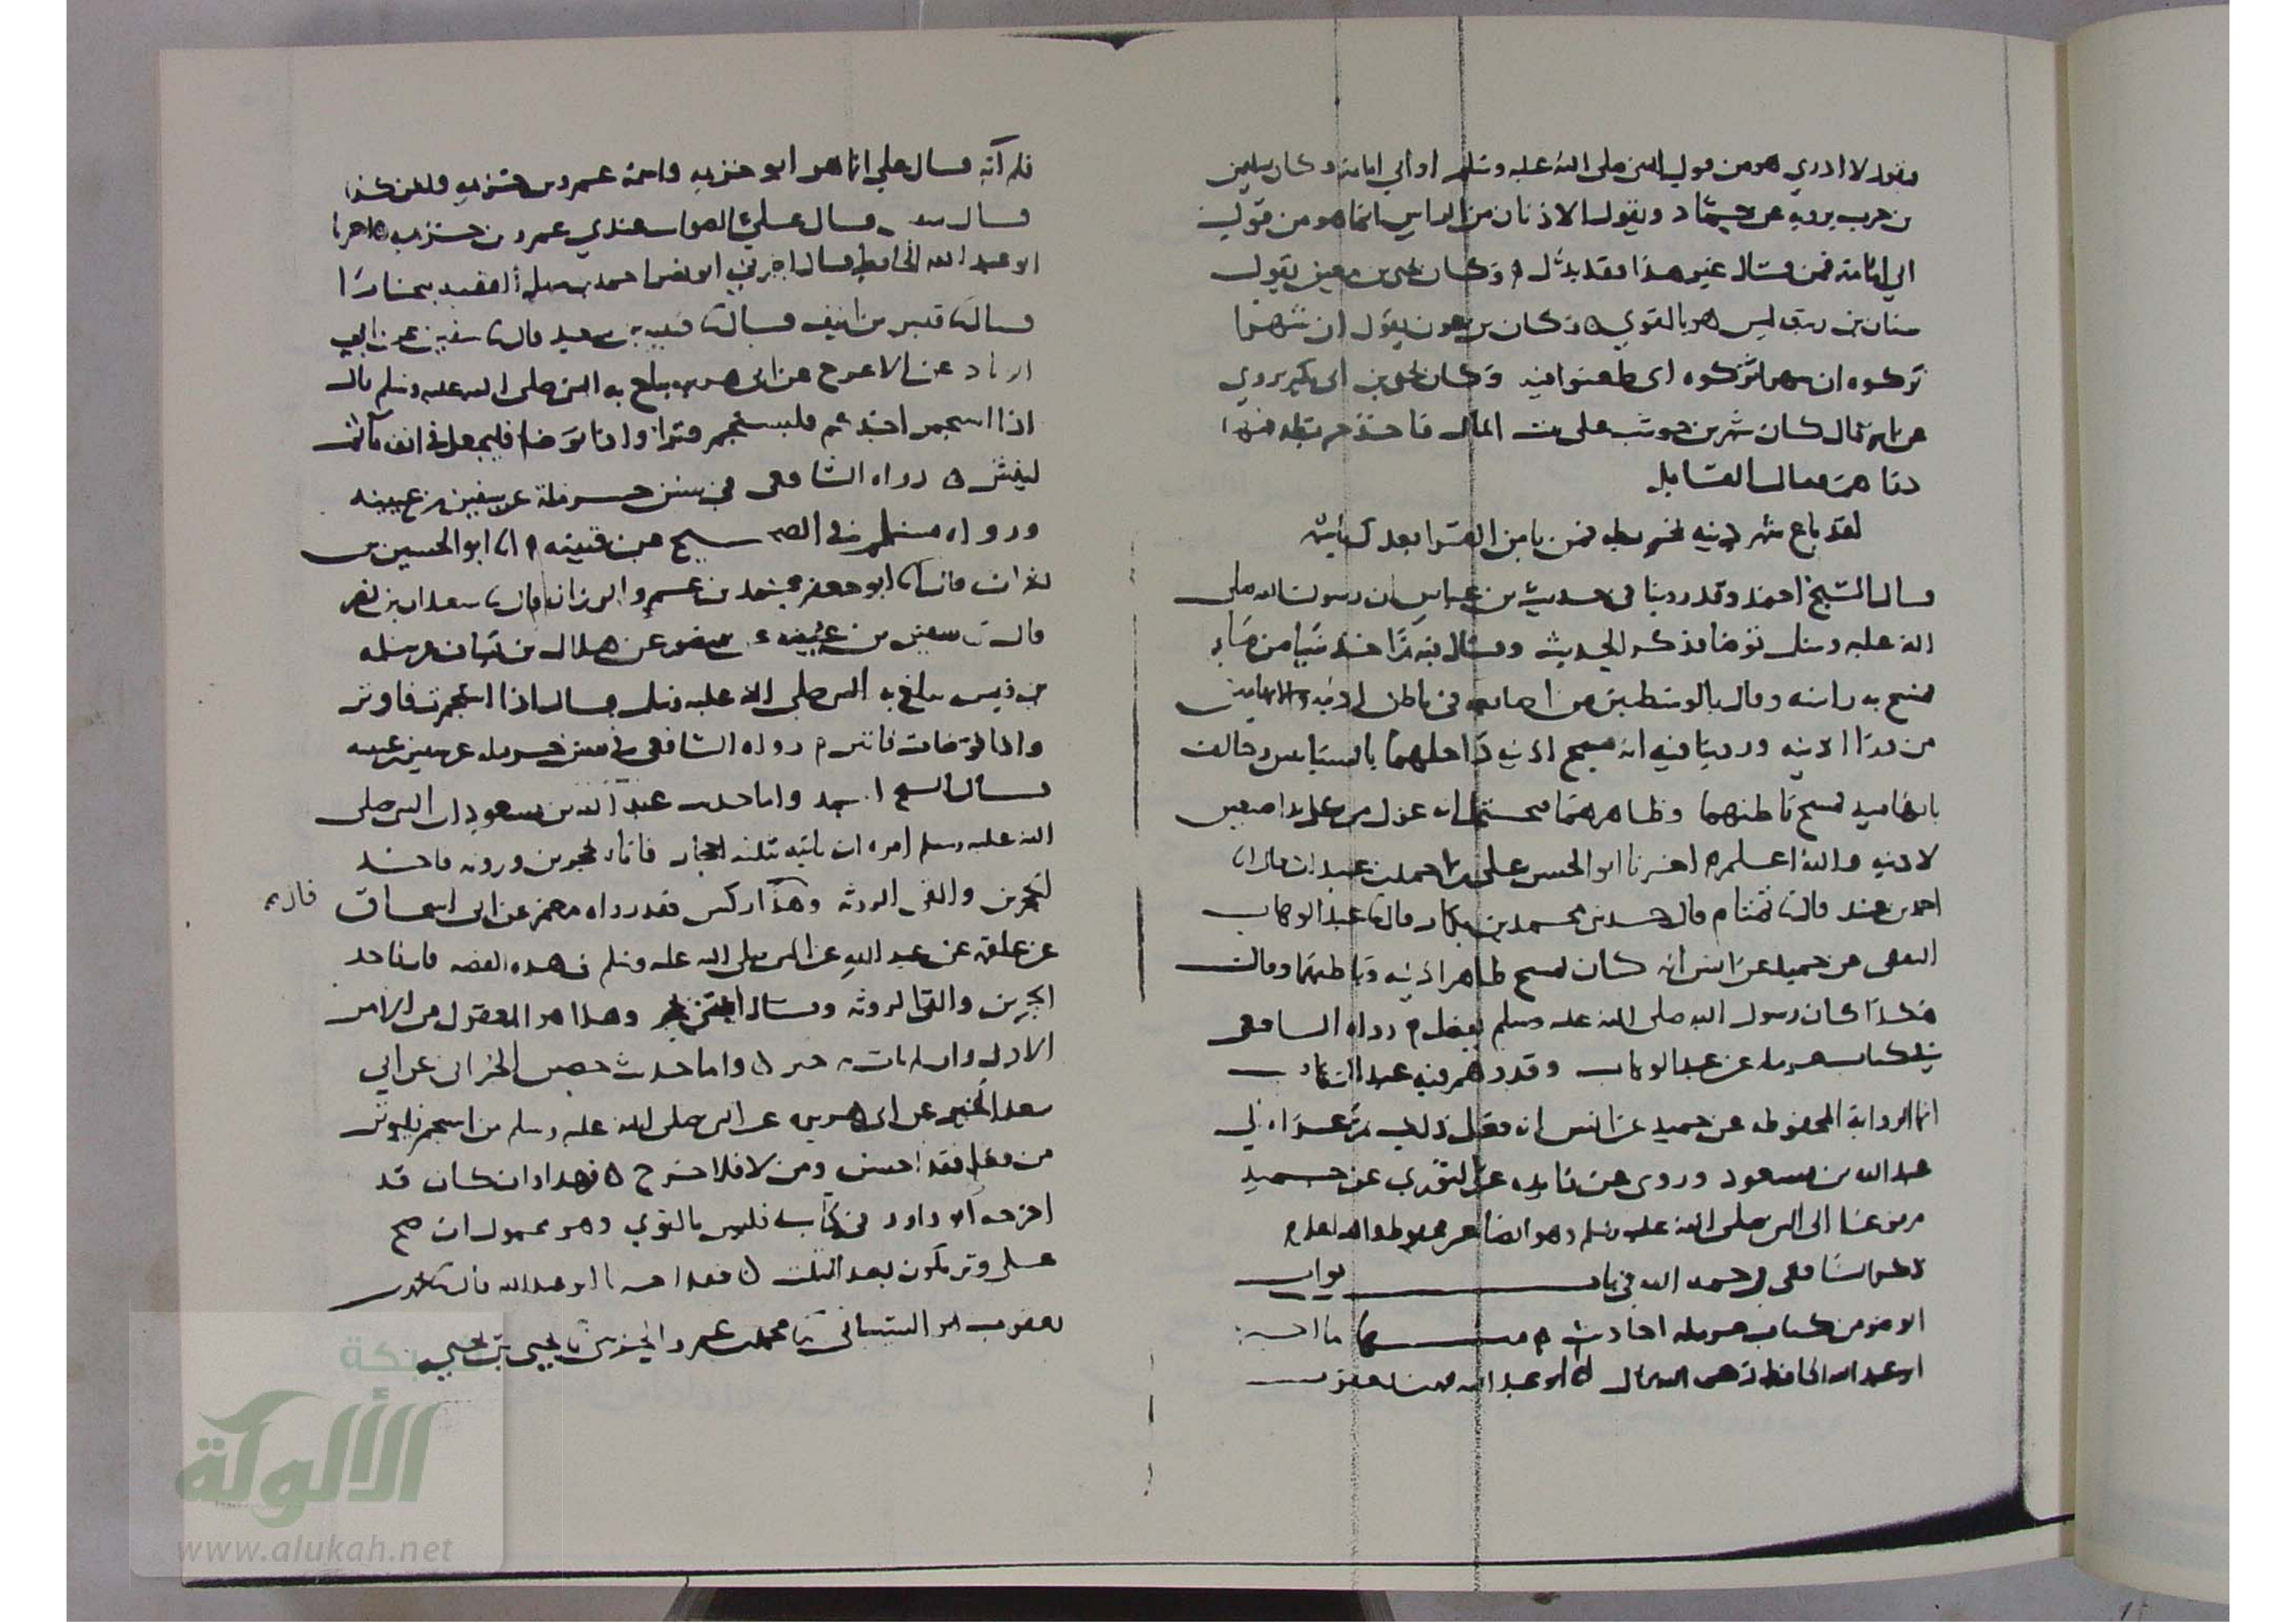 يقول لا ادري هو من قول النبي صلى الله عليه وسلم او ابي امامة وكان سليمن
بن حرب يرويه عن حماد ويقول الاذنان من الراس انما هو من قول
ابي امامة فمن قال غير هذا فقد بدل وكان يحيى بن معين يقول
سنان بن ليس هو بالقوي وكان بن عون يقول ان شهرا
تركوه ان شهرا تركوه اي طعنوا فيه وكان يحيى بن ابي بكير يروي
عن ابيه قال كان شهر بن حوشب على بيت المال فاخذ خريطة فيها
دراهم فقال القايل
لقد باع شهر دينه بخريطة فمن يامن القرا بعدك يا شهر
قال الشيخ احمد وقد روينا في حديث بن عباس ان رسول الله صلى
الله عليه وسلم توضا فذكر الحديث وقال فيه ثم اخذ شيا من ماء
فمسح به راسه وقال بالوسطيين من اصابعه في باطن اذنيه والابهامين
من ورا اذنيه وروينا فيه انه مسح اذنيه داخلهما بالسبابتين وخالف
بابهاميه فمسح باطنهما وظاهرهما فيحتمل انه عزل من كل يد اصبعين
لاذنيه والله اعلم اخبرنا ابو الحسن علي بن احمد بن عبدان قال انا
احمد بن عبيد قال ثنا تمتام قال حدثنا محمد بن بكار قال ثنا عبد الوهاب
الثقفي عن حميد عن انس انه كان يمسح ظاهر اذنيه وباطنهما وقال
هكذا كان رسول الله صلى الله عليه وسلم يفعل رواه الشافعي
في كتاب حرملة عن عبد الوهاب وقد وهم فيه عبد الوهاب
انما الرواية المحفوظة عن حميد عن انس انه فعل ذلك ثم عزاه الي
عبد الله بن مسعود وروى عن زايدة عن الثوري عن حميد
مرفوعا الى النبي صلى الله عليه وسلم وهو ايضا غير محفوظ والله اعلم
ذكر الشافعي رحمه الله في باب ابواب
الوضو من كتاب حرملة احاديث منها ما اخبرنا
ابو عبد الله الحافظ ابو عبد الله محمد بن يعقوب
فلم آته قال علي انما هو ابو خزيمة واسمه عمرو بن خزيمة ولكن كذا
قال سفين قال علي الصواب عندي عمرو بن خزيمة اخبرنا
ابو عبد الله الحافظ قال اخبرني ابو نصر احمد بن سهل الفقيه ببخارا
قال ثنا قيس بن انيف قال ثنا قتيبة بن سعيد قال ثنا سفين عن ابي
الزناد عن الاعرج عن ابي هريرة يبلغ به النبي صلى الله عليه وسلم قال
اذا استجمر احدكم فليستجمر وترا واذا توضا فليجعل في انفه ما ثم
لينثر رواه الشافعي في سنن حرملة عن سفين بن عيينه
ورواه مسلم في الصحيح عن قتيبه انا ابو الحسين بن
بشران قال انا ابو جعفر محمد بن عمرو الرزاز قال ثنا سعدان بن نصر
قال ثنا سفين بن عيينه عن منصور عن هلال بن يساف عن سلمه
بن قيس يبلغ به النبي صلى الله عليه وسلم قال اذا استجمرت فاوتر
واذا توضات فانثر رواه الشافعي في سنن حرمله عن سفين بن عيينه
قال الشيخ احمد واما حديث عبد الله بن مسعود ان النبي صلى
الله عليه وسلم امره ان ياتيه بثلثة احجار فاتاه بحجرين وروثه فاخذ
الحجرين والقى الروثه وهذا ركس فقد رواه معمر عن ابي اسحاق
قال
عن علقمة عن عبد الله عن النبي صلى الله عليه وسلم في هذه القصه قال فاخذ
الحجرين والقى الروثه وقال ائتني بحجر وهذا هو المعقول من الامر
الاول وان لم يات به خبر واما حديث حصين الحبراني عن ابي
سعد الخير عن ابي هريره عن النبي صلى الله عليه وسلم من استجمر فليوتر
من فعل فقد احسن ومن لا فلا حرج فهذا وان كان قد
اخرجه ابو داود في كتابه فليس بالقوي وهو محمول ان صح
على وتر يكون بعد الثلث فقد اخبرنا ابو عبد الله قال ثنا محمد بن
يعقوب ابو الشيباني ثنا محمد بن عمرو الحرشي ثنا يحيى بن يحيى
شبكة
الألوكة
www.alukah.net